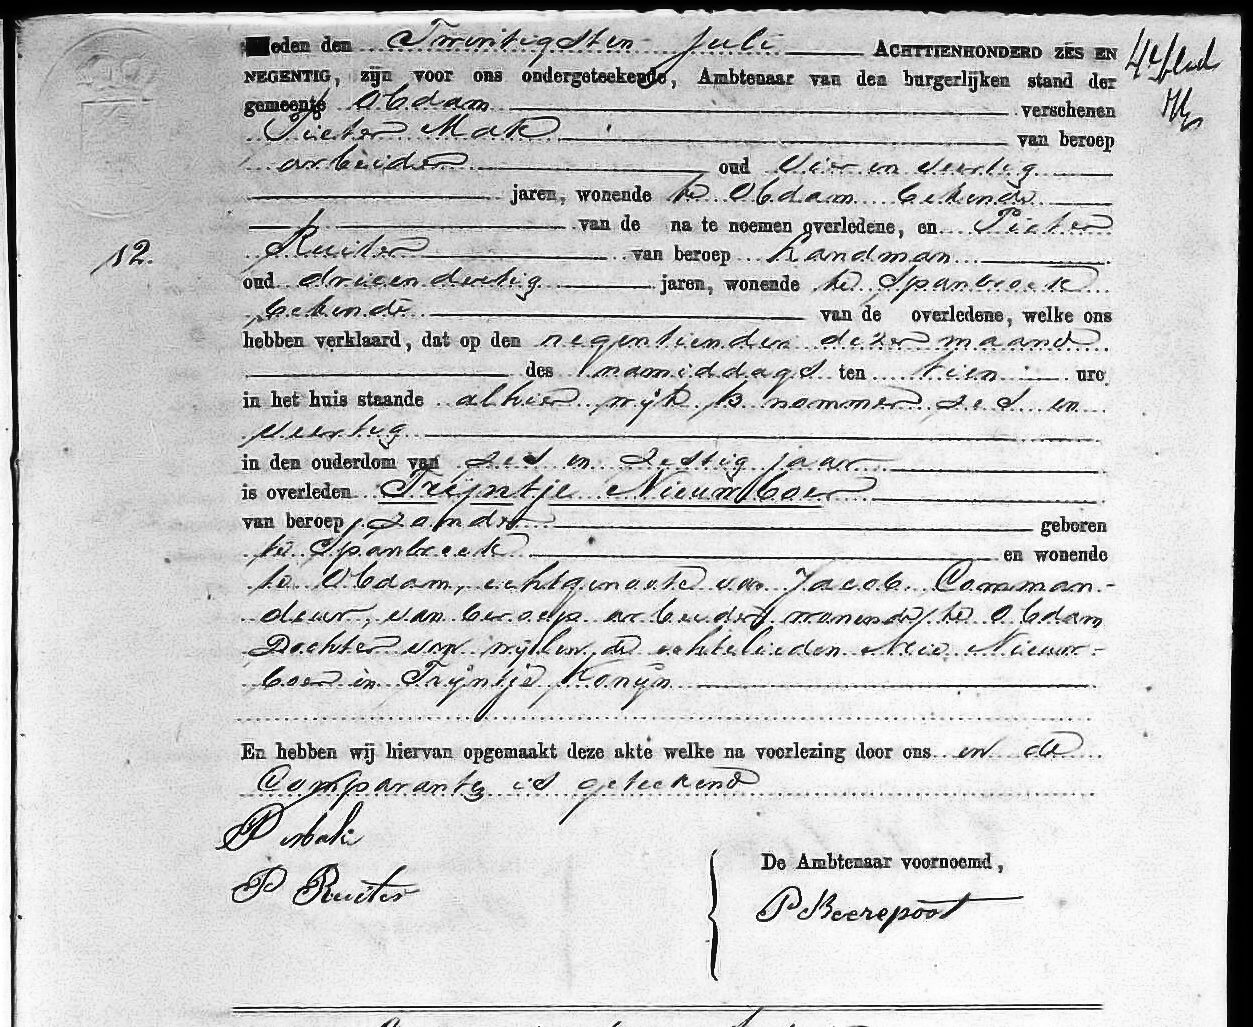 Heden den Twintigsten Juli ACHTTIENHONDERD ZES EN
NEGENTIG, zijn voor ons ondergeteekende, Ambtenaar van den burgerlijken stand der
gemeente Obdam verschenen
Pieter Mak van beroep
arbeider oud vier en veertig
jaren, wonende te Obdam bekende
van de na te noemen overledene, en Pieter
Ruiter van beroep Landman
12.
oud drieendertig jaren, wonende te Spanbroek
bekende van de overledene, welke ons
hebben verklaard, dat op den negentienden dezer maand
des namiddags ten tien ure
in het huis staande alhier wijk B nommer zes en
veertig
in den ouderdom van zes en zestig jaar
is overleden Trijntje Nieuwboer
van beroep zonder geboren
te Spanbroek en wonende
te Obdam, echtgenoote van Jacob Comman-
deur, van beroep arbeider, wonende te Obdam
Dochter van wijlen de echtelieden Nieuw-
boer en Trijntje Konijn
En hebben wij hiervan opgemaakt deze akte welke na voorlezing door ons en de
Comparanten is geteekend
P Mak
P Ruiter
De Ambtenaar voornoemd,
P Beerepoot